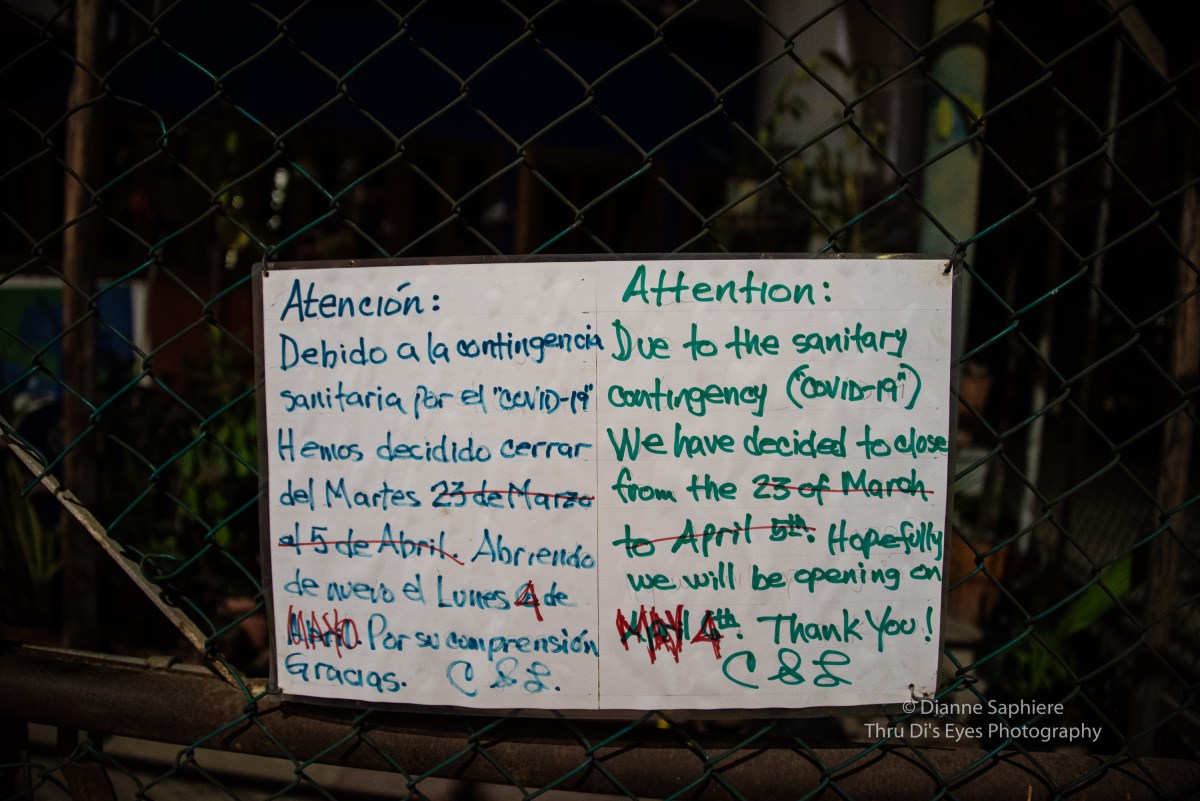 Atención:
Debido a la contingencia
sanitaria por el "COVID-19"
Hemos decidido cerrar
del Martes 23 de Marzo
al 5 de Abril. Abriendo
de nuevo el Lunes 4 de
MAYO. Por su comprensión
Gracias. C & L.
Attention:
Due to the sanitary
contingency ("COVID-19")
We have decided to close
from the 23 of March
to April 5th. Hopefully
we will be opening on
MAY 4th. Thank You!
C & L
© Dianne Saphiere
Thru Di's Eyes Photography